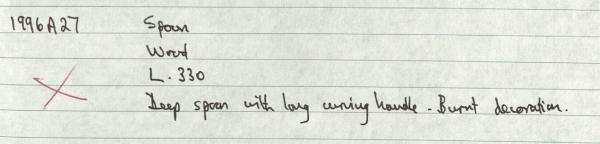 1996A27 Spoon
Wood
L. 330
Deep spoon with long curving handle - Burnt decoration.